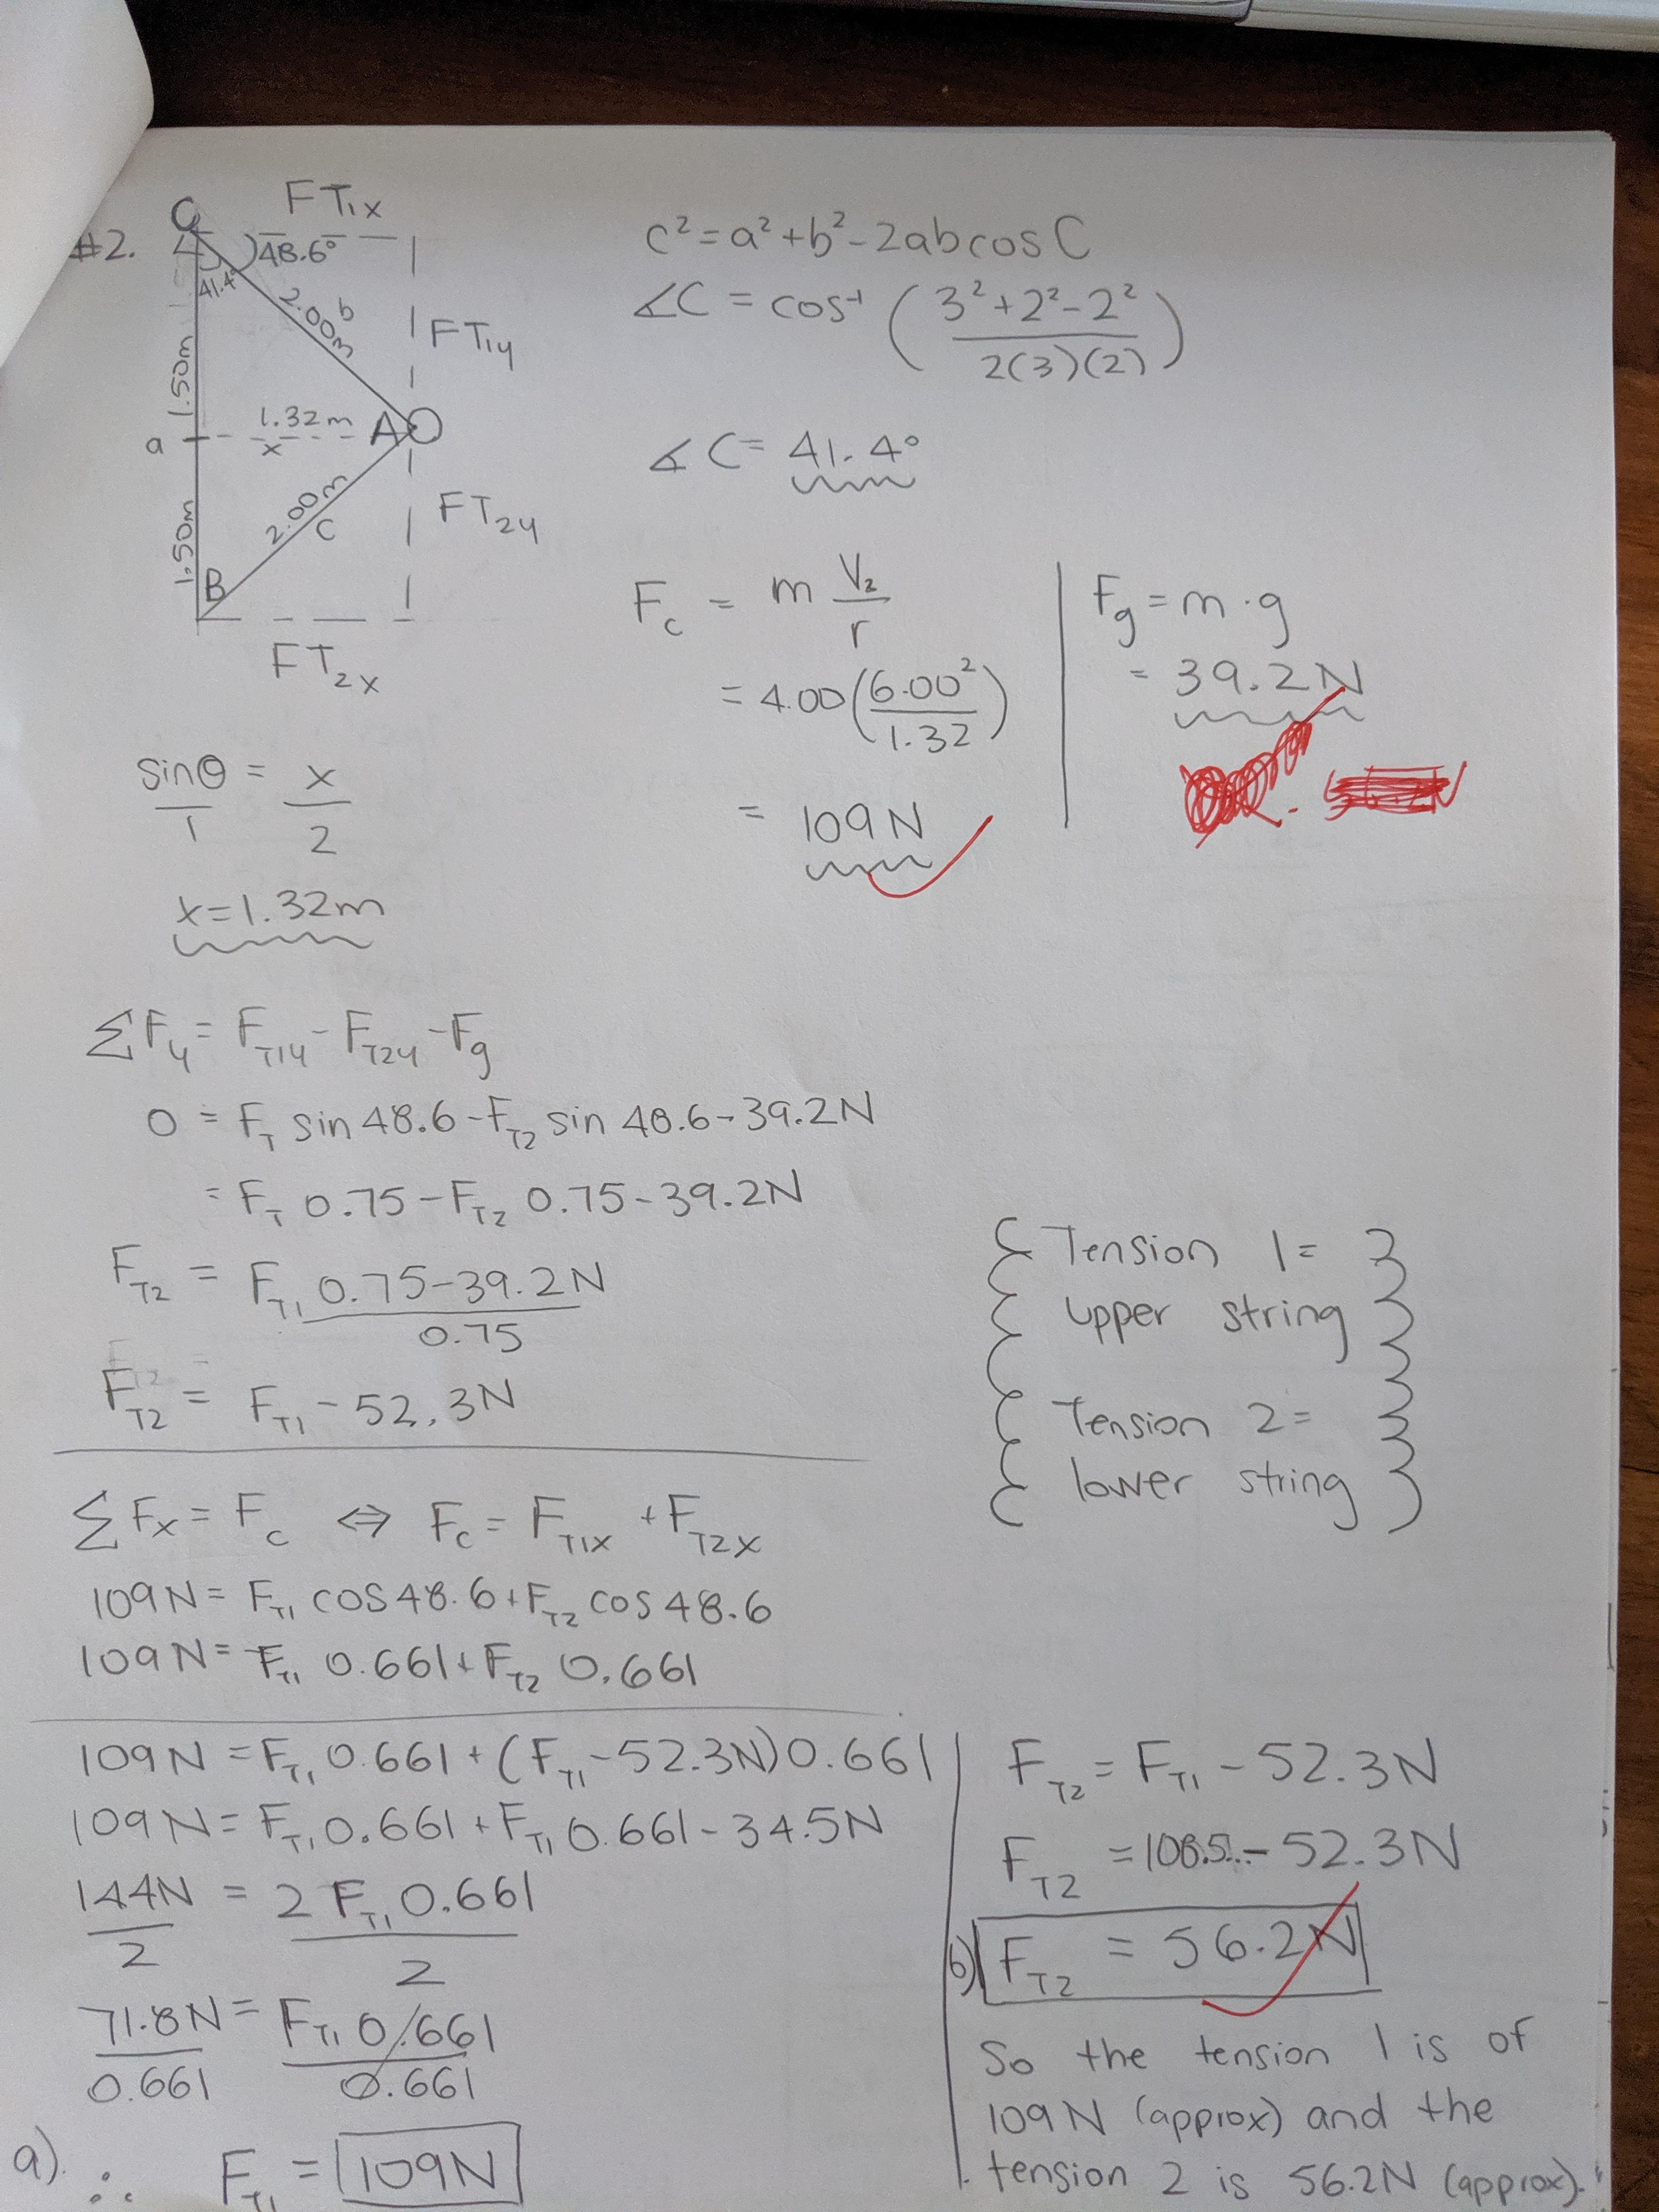 #2.
C
FT₁ₓ
48.6°
41.4°
2.00m
b
1.50m
FT₁y
1.32m
x
A
a
2.00m
C
1.50m
FT₂y
B
FT₂ₓ
c² = a² + b² - 2abcosC
∡C = cos⁻¹ (3² + 2² - 2² / 2(3)(2))
∡C = 41.4°
F_c = m V₂/r
= 4.00 (6.00² / 1.32)
= 109N
F_g = m · g
= 39.2N
sinθ/1 = x/2
x = 1.32m
ΣF_y = F_T1y - F_T2y - F_g
0 = F_T sin 48.6 - F_T2 sin 48.6 - 39.2N
= F_T 0.75 - F_T2 0.75 - 39.2N
F_T2 = F_T1 0.75 - 39.2N / 0.75
F_T2 = F_T1 - 52.3N
Tension 1 =
upper string
Tension 2 =
lower string
ΣFx = F_c ⇔ F_c = F_T1x + F_T2x
109N = F_T1 cos 48.6 + F_T2 cos 48.6
109N = F_T1 0.661 + F_T2 0.661
109N = F_T1 0.661 + (F_T1 - 52.3N) 0.661
109N = F_T1 0.661 + F_T1 0.661 - 34.5N
144N / 2 = 2 F_T1 0.661 / 2
71.8N / 0.661 = F_T1 0.661 / 0.661
a) ∴ F_T1 = 109N
F_T2 = F_T1 - 52.3N
F_T2 = 108.5... - 52.3N
b) F_T2 = 56.2N
So the tension 1 is of
109N (approx) and the
tension 2 is 56.2N (approx).